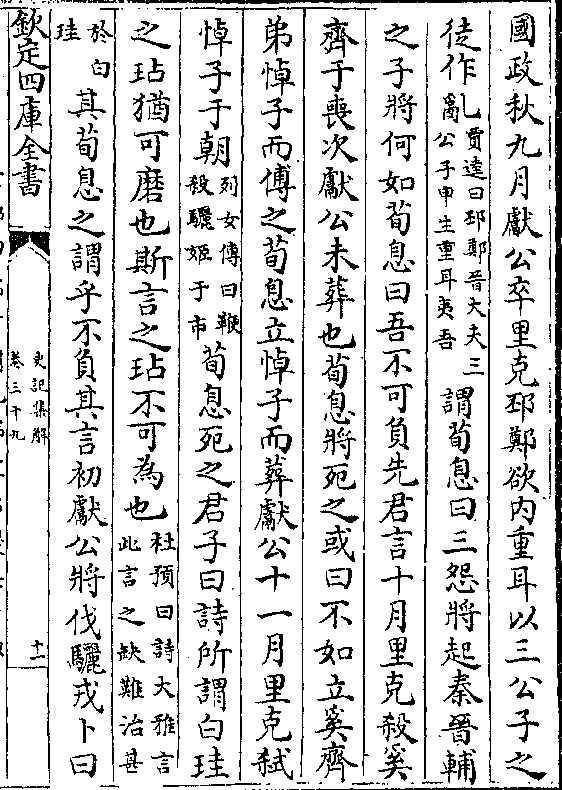 國政秋九月獻公卒里克邳鄭欲内重耳以三公子之
徒作亂賈逵曰邳鄭晉大夫三公子申生重耳夷吾謂荀息曰三怨將起秦晉輔
之子將何如荀息曰吾不可負先君言十月里克殺奚
齊于喪次獻公未葬也荀息將死之或曰不如立奚齊
弟悼子而傅之荀息立悼子而葬獻公十一月里克弑
悼子于朝列女傳曰鞭殺驪姬于市荀息死之君子曰詩所謂白珪
之玷猶可磨也斯言之玷不可為也杜預曰詩大雅言此言之缺難治甚
於白珪其荀息之謂乎不負其言初獻公將伐驪戎卜曰
欽定四庫全書
史記集解
卷三十九
十一